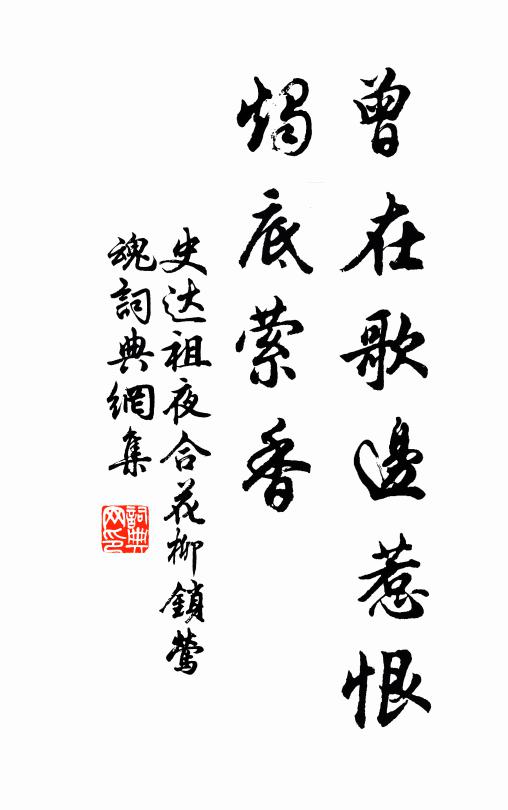 曾在歌邊惹恨
燭底縈香
史达祖夜合花柳鎖鶯
魂詞典網集
詞典
网印